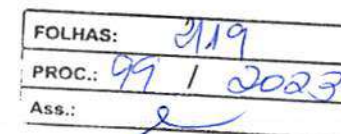 FOLHAS: 2119
PROC.: 99 / 2023
Ass.: